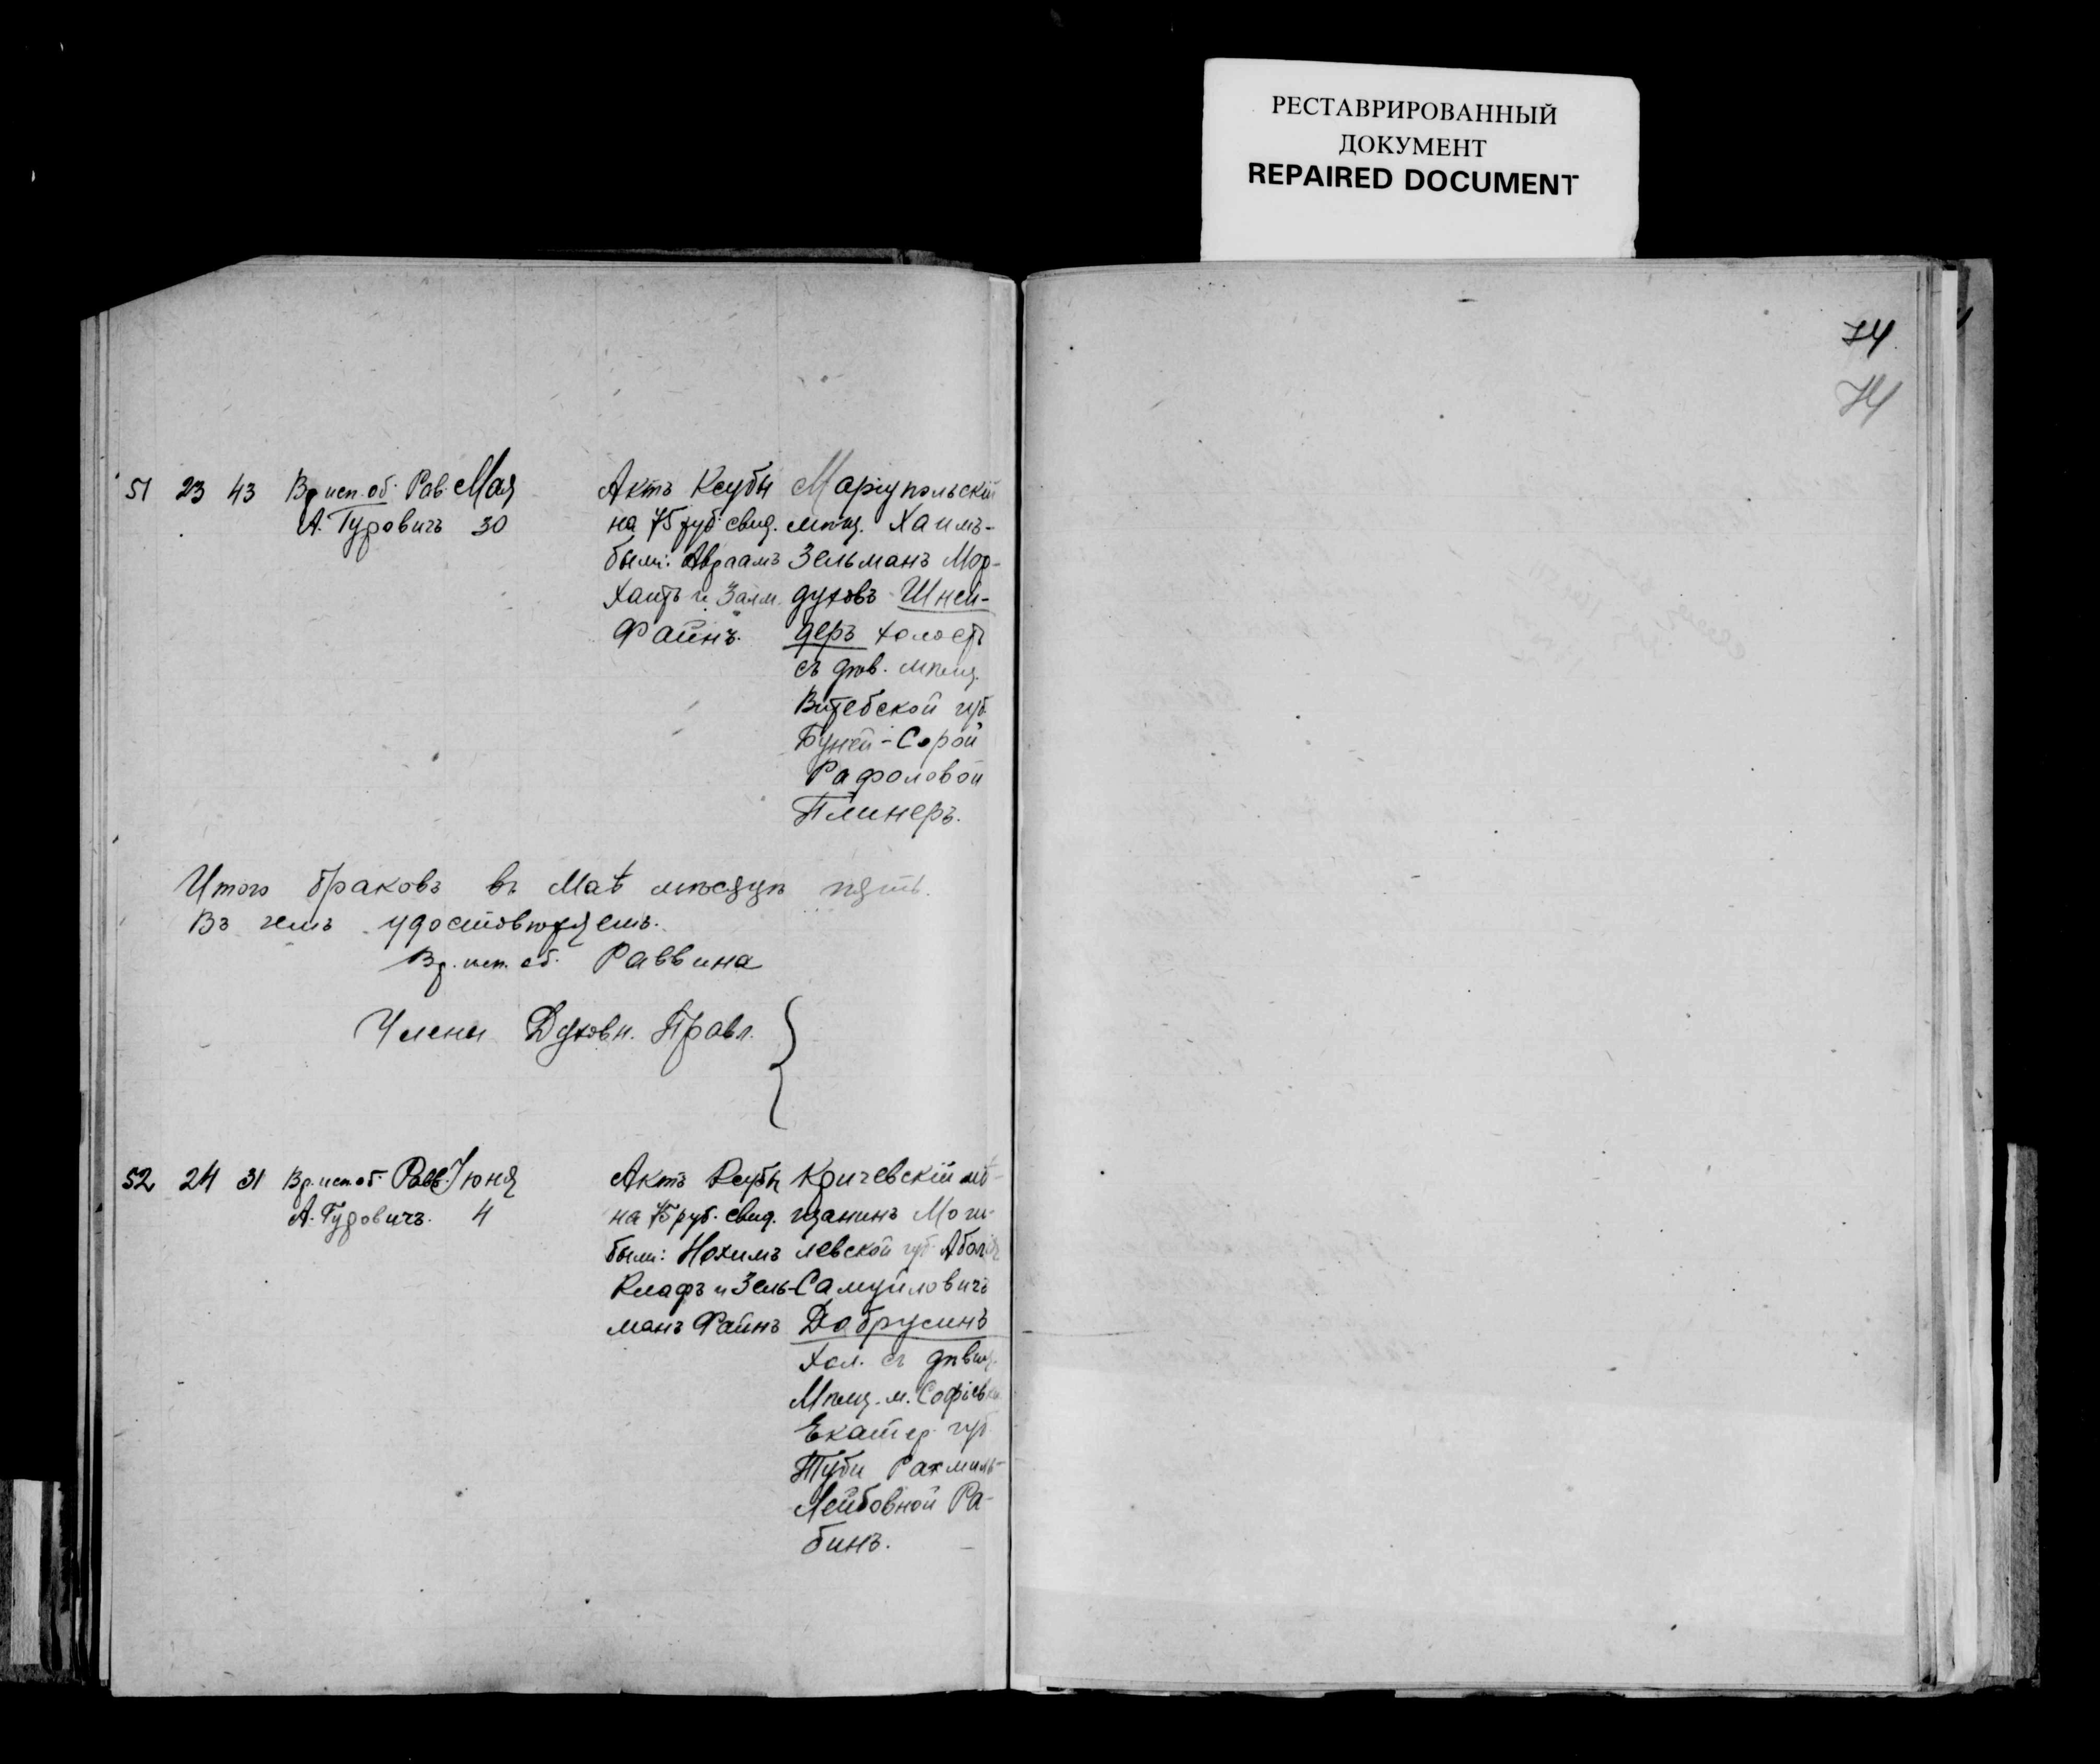 РЕСТАВРИРОВАННЫЙ
ДОКУМЕНТ
REPAIRED DOCUMENT
74
74
51 23 43 Вр. исп. об. Рав. Мая Актъ Ксубы Маріупольскій
А. Гуровичъ 30 на 75 руб. свид. мѣщ. Хаимъ-
были: Авраамъ Зельманъ Мор-
Хаитъ и Залм. духовъ Шней-
Файнъ. деръ холост
съ дѣв. мѣщ.
Витебской губ.
Буней-Сорой
Рафоловой
Плинеръ.
Итого браковъ въ Маѣ мѣсяцѣ пять.
Въ чемъ удостовѣряемъ.
Вр. исп. об. Раввина
Члены Духовн. Правл.
52 24 31 Вр. исп. об. Равв. Іюня Актъ Ксубы Кричевскій мѣ-
А. Гуровичъ. 4 на 75 руб. свид. щанинъ Моги-
были: Нохимъ левской губ.
Клафъ и Зель- Самуиловичъ
манъ Файнъ Добрусинъ
Хол. съ дѣвиц.
Мѣщ. м. Софіевки
Екатер. губ
Туби Рахмиль-
Лейбовной Ра-
бинъ.